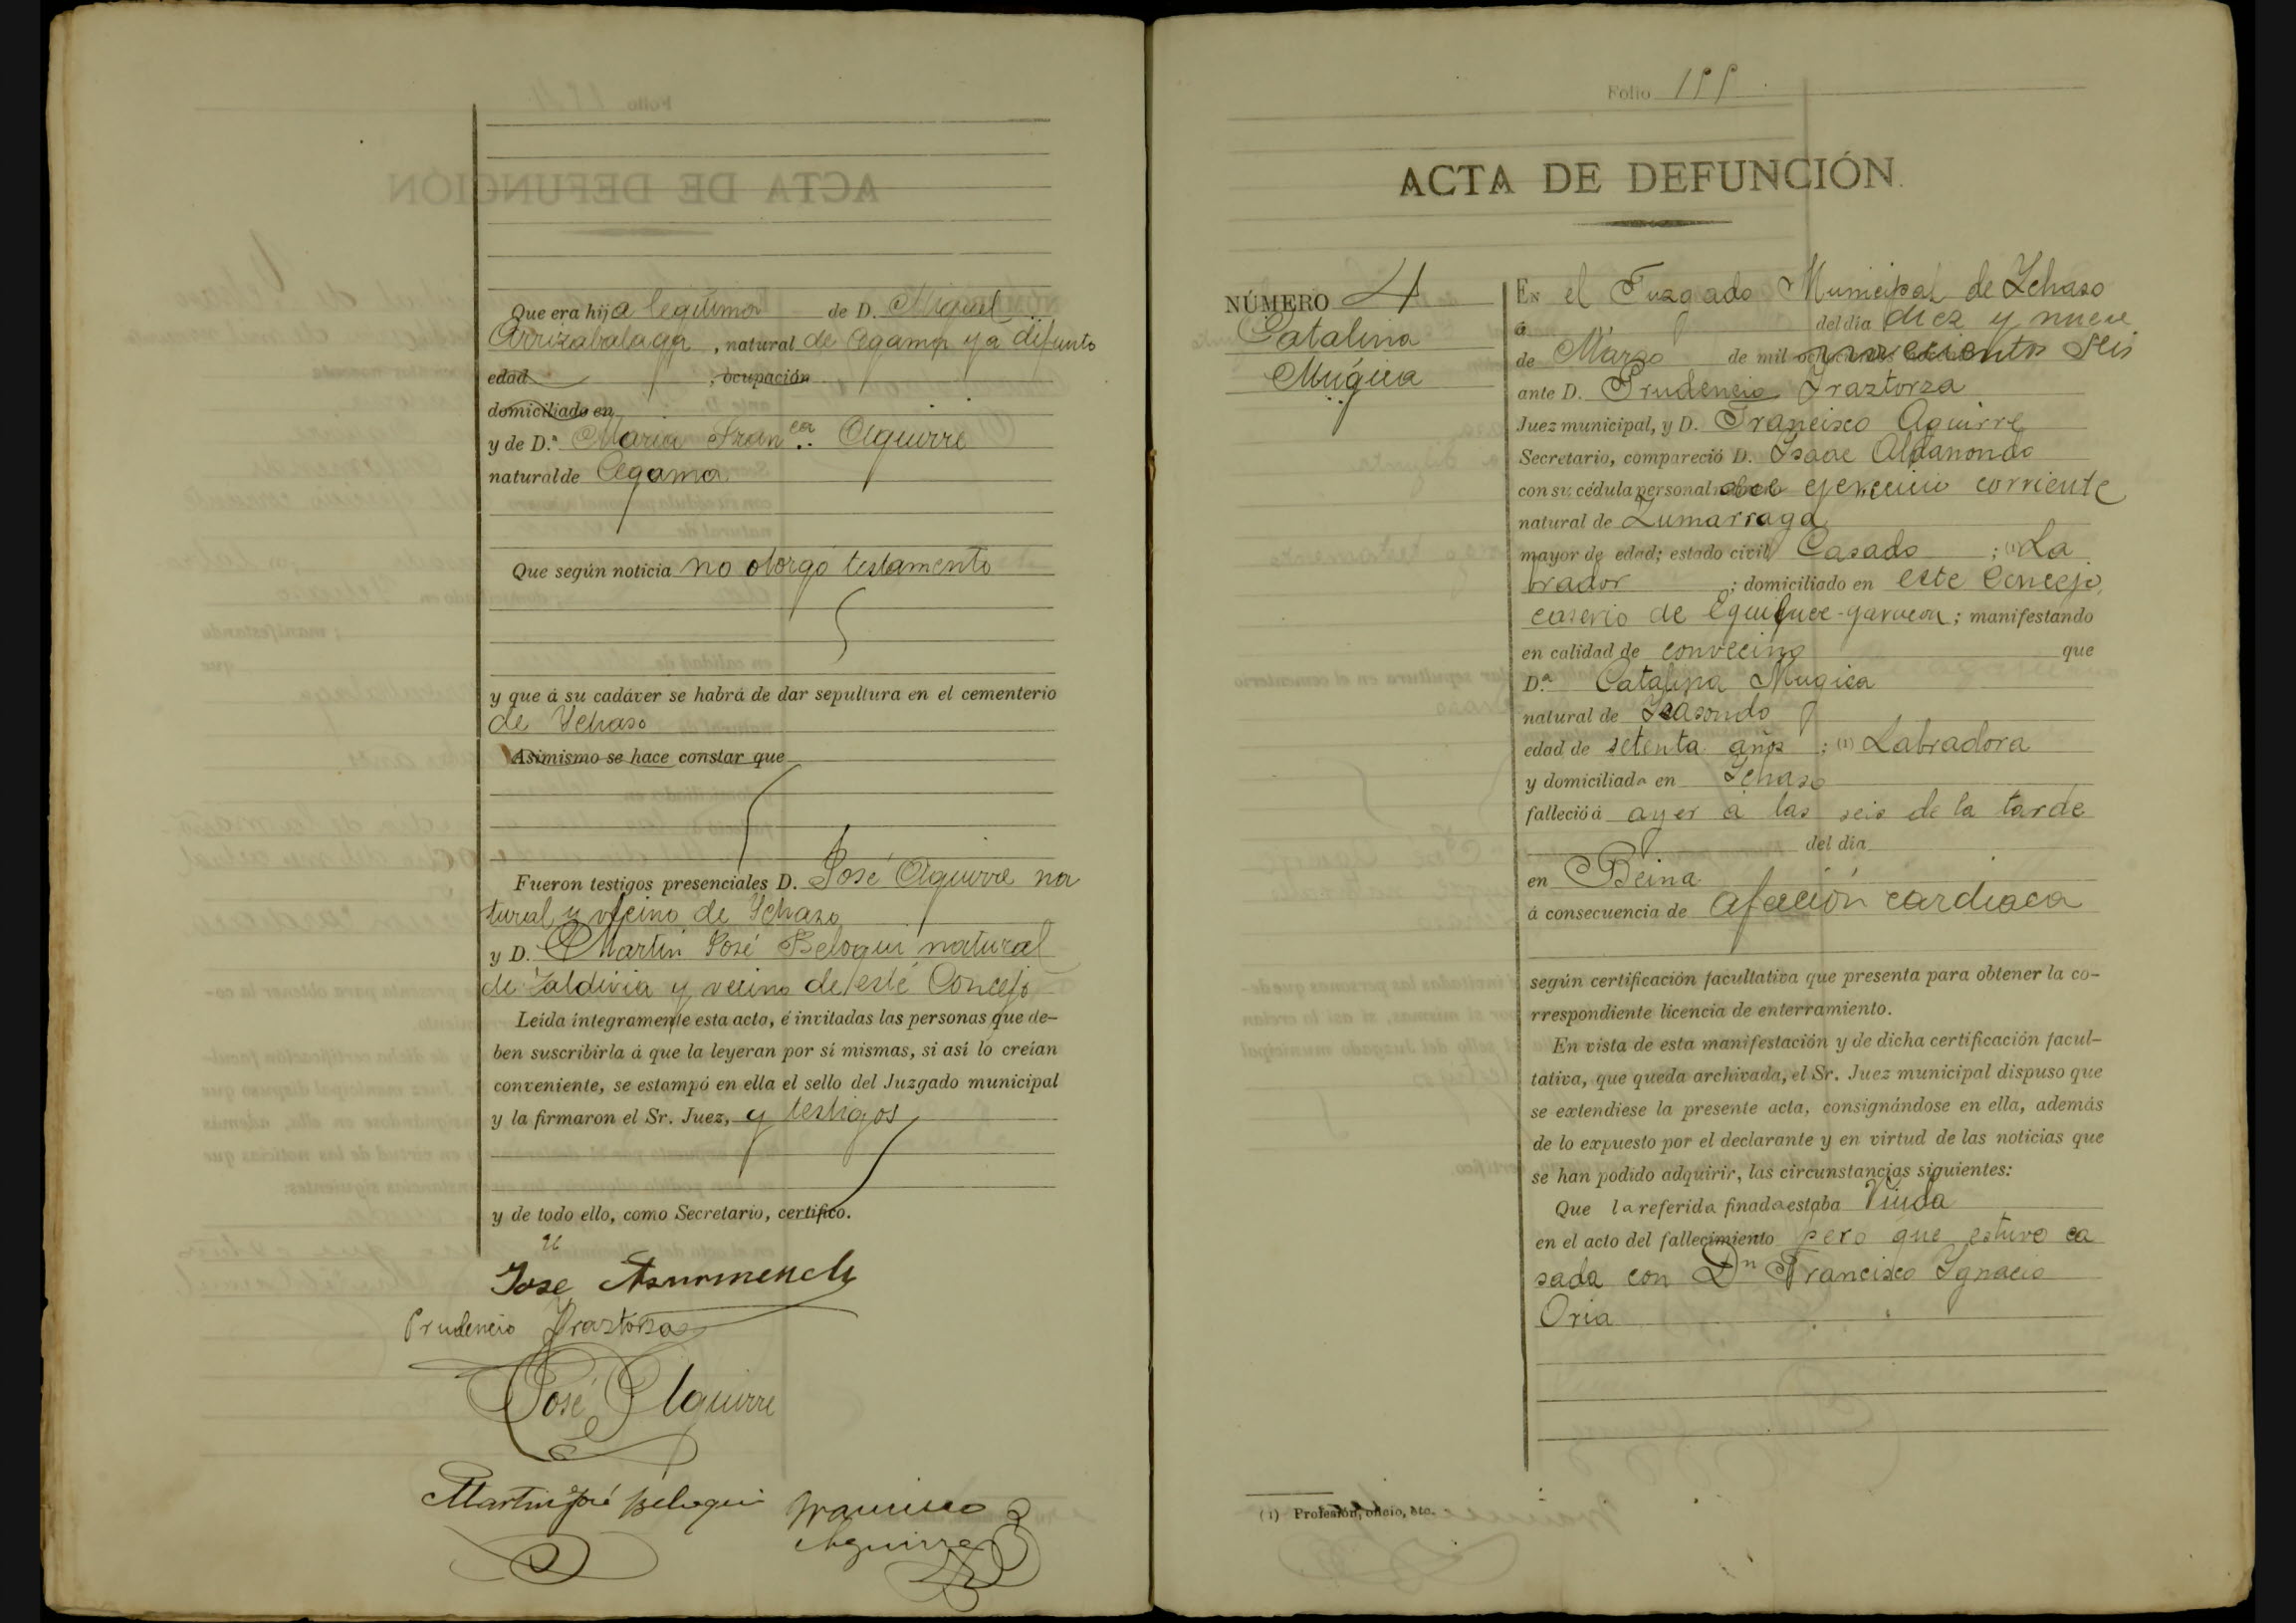 Que era hija legitima de D. Miguel
Arrizabalaga, natural de Cegama ya difunto
edad , ocupación
domiciliado en
y de D.ª Maria Fran.ca Aguirre
natural de Cegama
Que según noticia no otorgó testamento
y que á su cadáver se habrá de dar sepultura en el cementerio
de Ichaso
Asimismo se hace constar que
Fueron testigos presenciales D. José Aguirre na
tural y vecino de Ichaso
y D. Martin José Beloqui natural
de Zaldivia y vecino de este Concejo
Leída íntegramente esta acta, é invitadas las personas que de-
ben suscribirla á que la leyeran por sí mismas, si así lo creían
conveniente, se estampó en ella el sello del Juzgado municipal
y la firmaron el Sr. Juez, y testigos
y de todo ello, como Secretario, certifico.
Jose Asurmendi
Prudencio Iraztorza
José Aguirre
Martin José Beloqui
Francisco
Aguirre
Folio 155
ACTA DE DEFUNCIÓN.
NÚMERO 4
Catalina
Múgica
En el Juzgado Municipal de Ichaso
á del día diez y nueve
de Marzo de mil novecientos seis
ante D. Prudencio Iraztorza
Juez municipal, y D. Francisco Aguirre
Secretario, compareció D. Isaac Aldanondo
con su cédula personal del ejercicio corriente
natural de Zumarraga
mayor de edad; estado civil Casado ; (1) La
brador ; domiciliado en este Concejo,
caserio de ; manifestando
en calidad de convecino que
D.ª Catalina Mugica
natural de Isasondo
edad de setenta años ; (1) Labradora
y domiciliada en Ichaso
falleció á ayer á las seis de la tarde
del día
en Beina
á consecuencia de afección cardiaca
según certificación facultativa que presenta para obtener la co-
rrespondiente licencia de enterramiento.
En vista de esta manifestación y de dicha certificación facul-
tativa, que queda archivada, el Sr. Juez municipal dispuso que
se extendiese la presente acta, consignándose en ella, además
de lo expuesto por el declarante y en virtud de las noticias que
se han podido adquirir, las circunstancias siguientes:
Que la referida finada estaba Viuda
en el acto del fallecimiento pero que estuvo ca
sada con Dn Francisco Ignacio
Oria
(1) Profesión, oficio, etc.